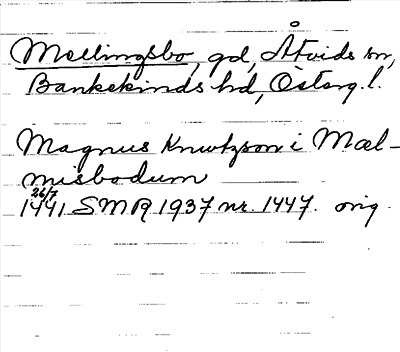 Mellingsbo, gd, Åtvids sn,
Bankekinds hd, Österg. l.
Magnus Knwtzson i Mæl-
misbodum
26/7
1441 SMR 1937 nr. 1447. orig.